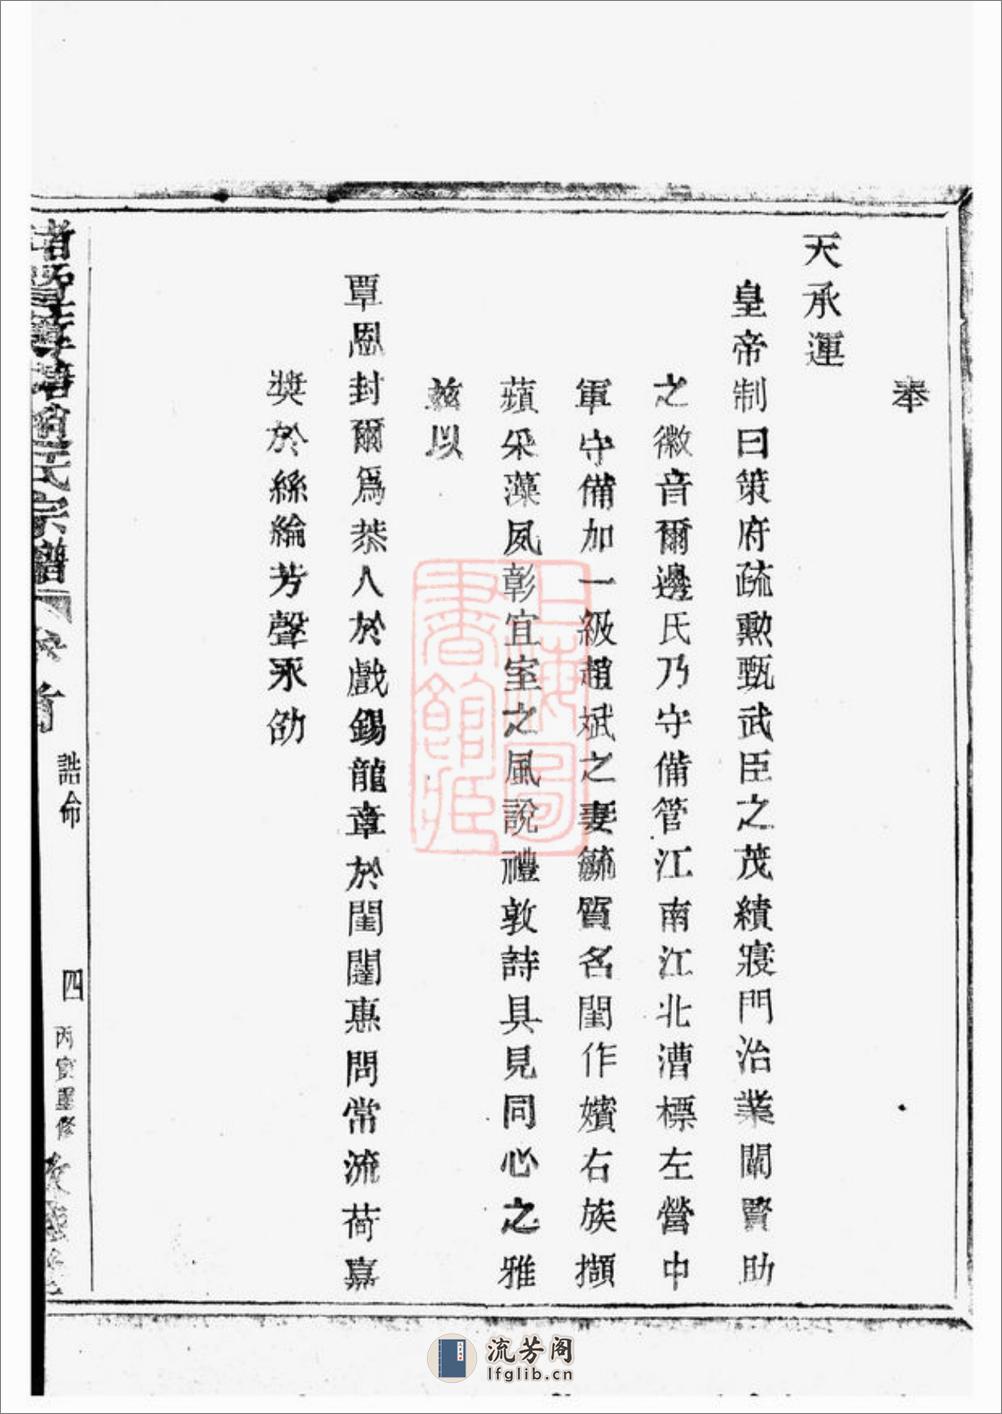 奉
天承運
皇帝制曰策府疏勲甄武臣之茂績寢門治業闡賢助
之徽音爾邊氏乃守備管江南江北漕標左營中
軍守備加一級趙斌之妻毓質名閨作嬪右族擷
蘋采藻夙彰宜室之風說禮敦詩具見同心之雅
玆以
覃恩封爾爲恭人於戲錫龍章於閨闥惠問常流荷嘉
奬於絲綸芳聲永劭
趙氏宗譜
首
誥命
四
丙寅重修
上海圖書館藏
流芳阁
lfglib.cn